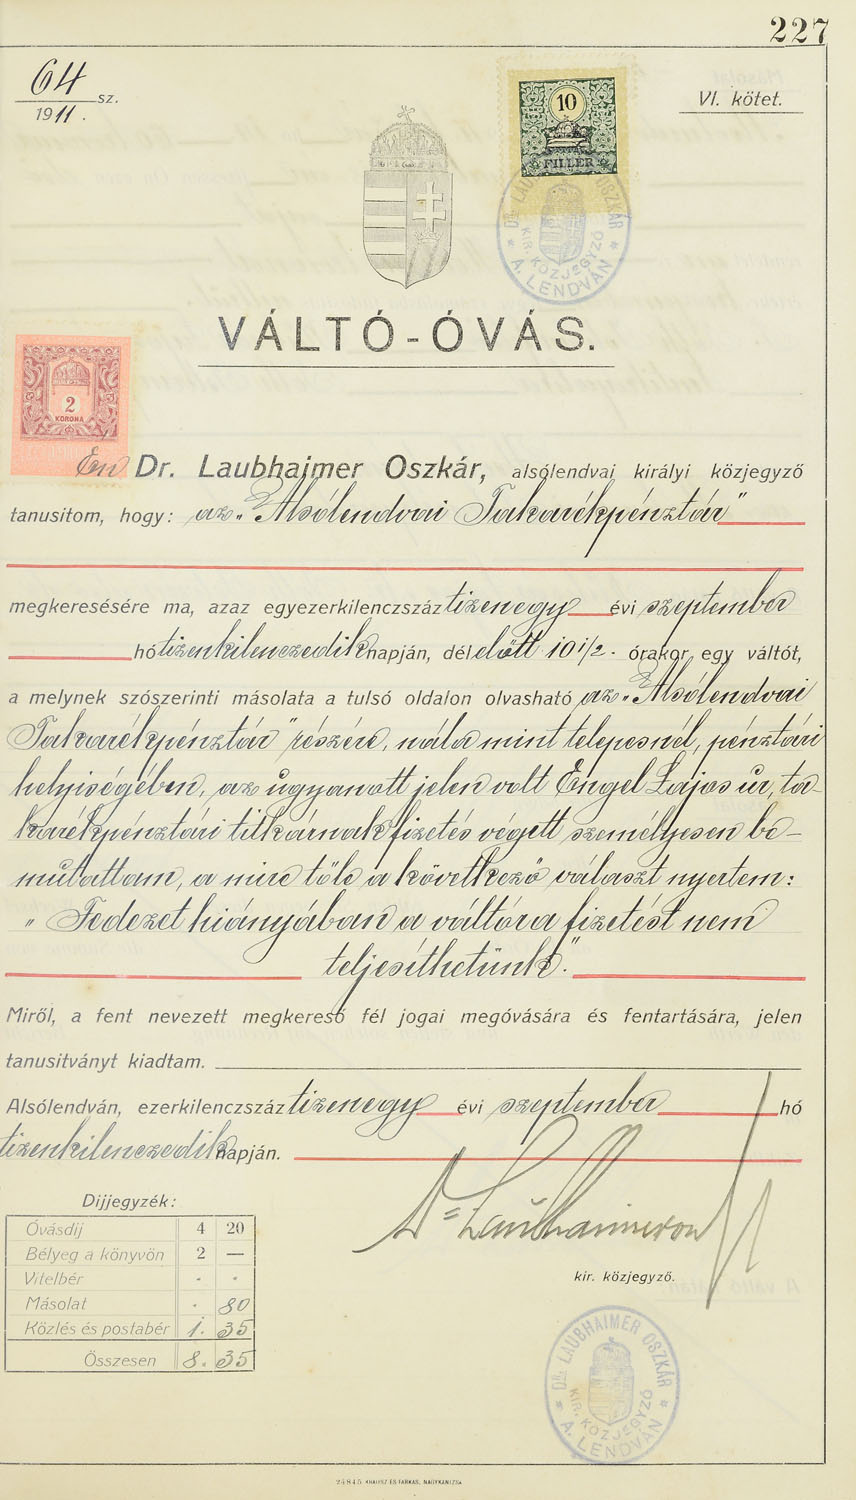 227
64 sz.
1911.
VI. kötet.
10
FILLÉR
DR. LAUBHAIMER OSZKÁR
KIR. KÖZJEGYZŐ
* A. LENDVÁN *
VÁLTÓ-ÓVÁS.
2
KORONA
Én Dr. Laubhaimer Oszkár, alsólendvai királyi közjegyző
tanusitom, hogy: az „Alsólendvai Takarékpénztár"
megkeresésére ma, azaz egyezerkilenczszáz tizenegy évi szeptember
hó tizenkilenczedik napján, dél előtt 10 1/2 - órakor egy váltót,
a melynek szószerinti másolata a tulsó oldalon olvasható az „Alsólendvai
Takarékpénztár" részére, nála mint telepesnél, pénztári
helyiségében, az ugyanott jelen volt Engel Lajos úr, ta-
karékpénztári titkárnak fizetés végett személyesen be-
mutattam, a mire tőle a következő választ nyertem:
„Fedezet hiányában a váltóra fizetést nem
teljesíthetünk."
Miről, a fent nevezett megkereső fél jogai megóvására és fentartására, jelen
tanusitványt kiadtam.
Alsólendván, ezerkilenczszáz tizenegy évi szeptember hó
tizenkilenczedik napján.
Dijjegyzék:
Óvásdij 4 20
Bélyeg a könyvön 2 —
Vitelbér - -
Másolat . 80
Közlés és postabér 1. 35
Összesen 8. 35
Dr. Laubhaimer
kir. közjegyző.
DR. LAUBHAIMER OSZKÁR
KIR. KÖZJEGYZŐ
* A. LENDVÁN *
24845 KRAUSZ ÉS FARKAS, NAGYKANIZSA